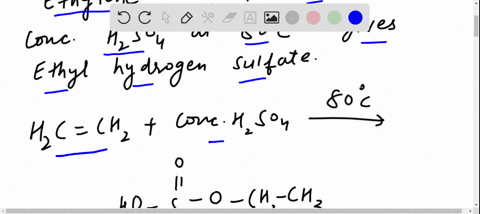 Ethylene
Conc. H2SO4 at 80°C gives
Ethyl hydrogen sulfate.
H2C=CH2 + Conc. H2SO4 80°C
O
HO-S-O-CH2-CH2